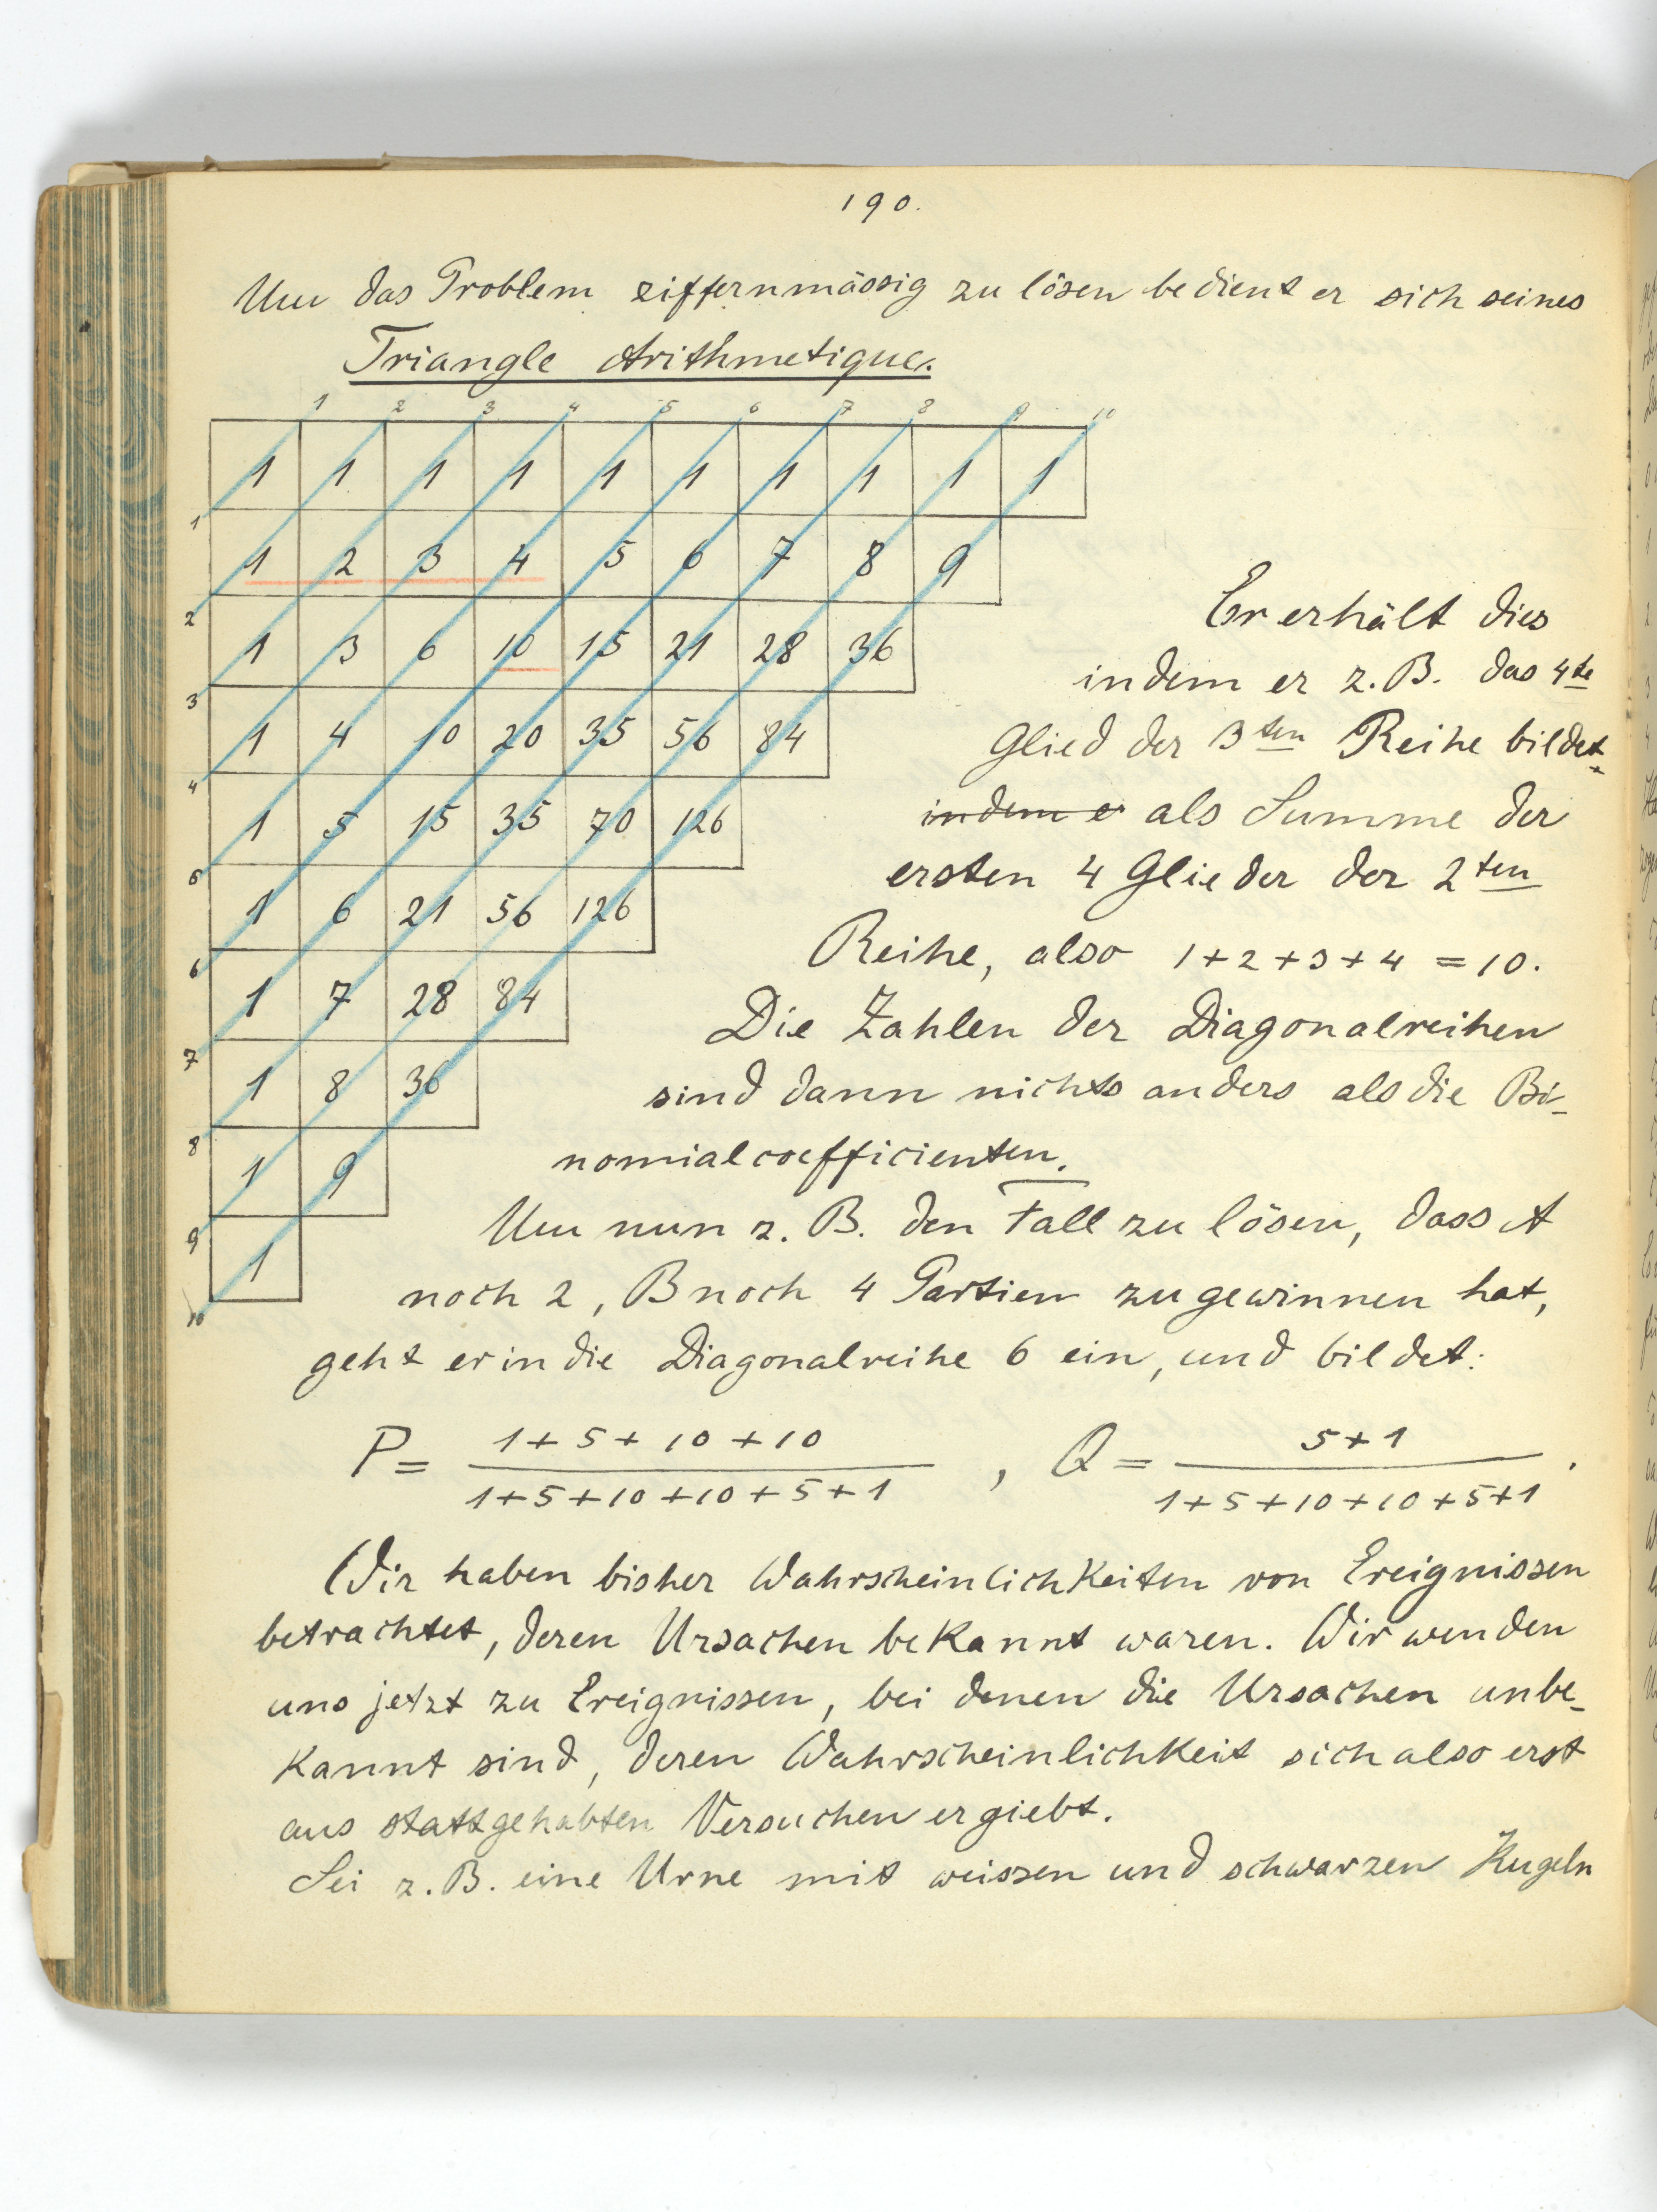 190.
Um das Problem ziffernmässig zu lösen bedient er sich seines
Triangle Arithmetique.
1 2 3 4 5 6 7 8 9 10
1 1 1 1 1 1 1 1 1 1
1
1 2 3 4 5 6 7 8 9
2
1 3 6 10 15 21 28 36
3
1 4 10 20 35 56 84
4
1 5 15 35 70 126
5
1 6 21 56 126
6
1 7 28 84
7
1 8 36
8
1 9
9
1
10
Er erhält dies
indem er z.B. das 4te
Glied der 3ten Reihe bildet
indem er als Summe der
ersten 4 Glieder der 2ten
Reihe, also 1+2+3+4 = 10.
Die Zahlen der Diagonalreihen
sind dann nichts anders als die Bi-
nomialcoefficienten.
Um nun z. B. den Fall zu lösen, dass A
noch 2, B noch 4 Partien zu gewinnen hat,
geht er in die Diagonalreihe 6 ein, und bildet:
P = (1+5+10+10)/(1+5+10+10+5+1), Q = (5+1)/(1+5+10+10+5+1).
Wir haben bisher Wahrscheinlichkeiten von Ereignissen
betrachtet, deren Ursachen bekannt waren. Wir wenden
uns jetzt zu Ereignissen, bei denen die Ursachen unbe-
kannt sind, deren Wahrscheinlichkeit sich also erst
aus stattgehabten Versuchen ergiebt.
Sei z.B. eine Urne mit weissen und schwarzen Kugeln